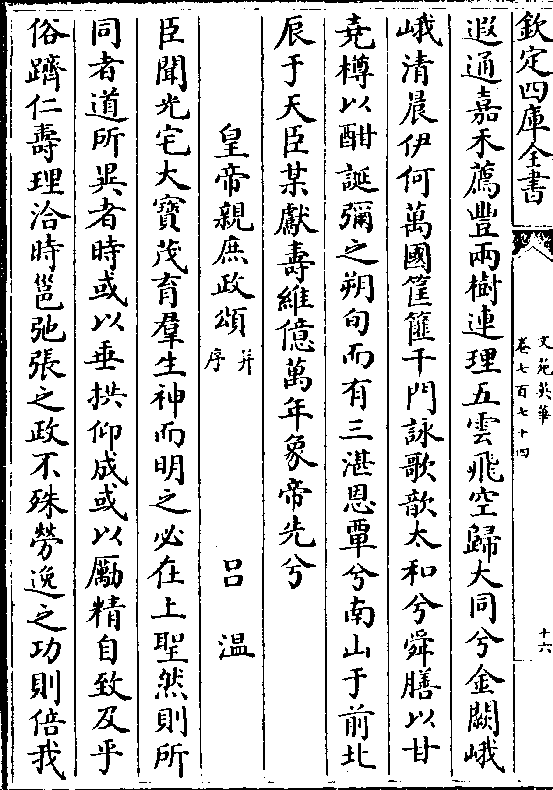 欽定四庫全書
文苑英華
卷七百七十四
十六
遐通嘉禾薦豐兩樹連理五雲飛空歸大同兮金闕峨
峨清晨伊何萬國筐篚千門詠歌歆太和兮舜膳以甘
堯樽以酣誕彌之朔旬而有三湛恩覃兮南山于前北
辰于天臣某獻壽維億萬年象帝先兮
皇帝親庶政頌并序
吕溫
臣聞光宅大寶茂育羣生神而明之必在上聖然則所
同者道所異者時或以垂拱仰成或以勵精自致及乎
俗躋仁壽理洽時邕弛張之政不殊勞逸之功則倍我